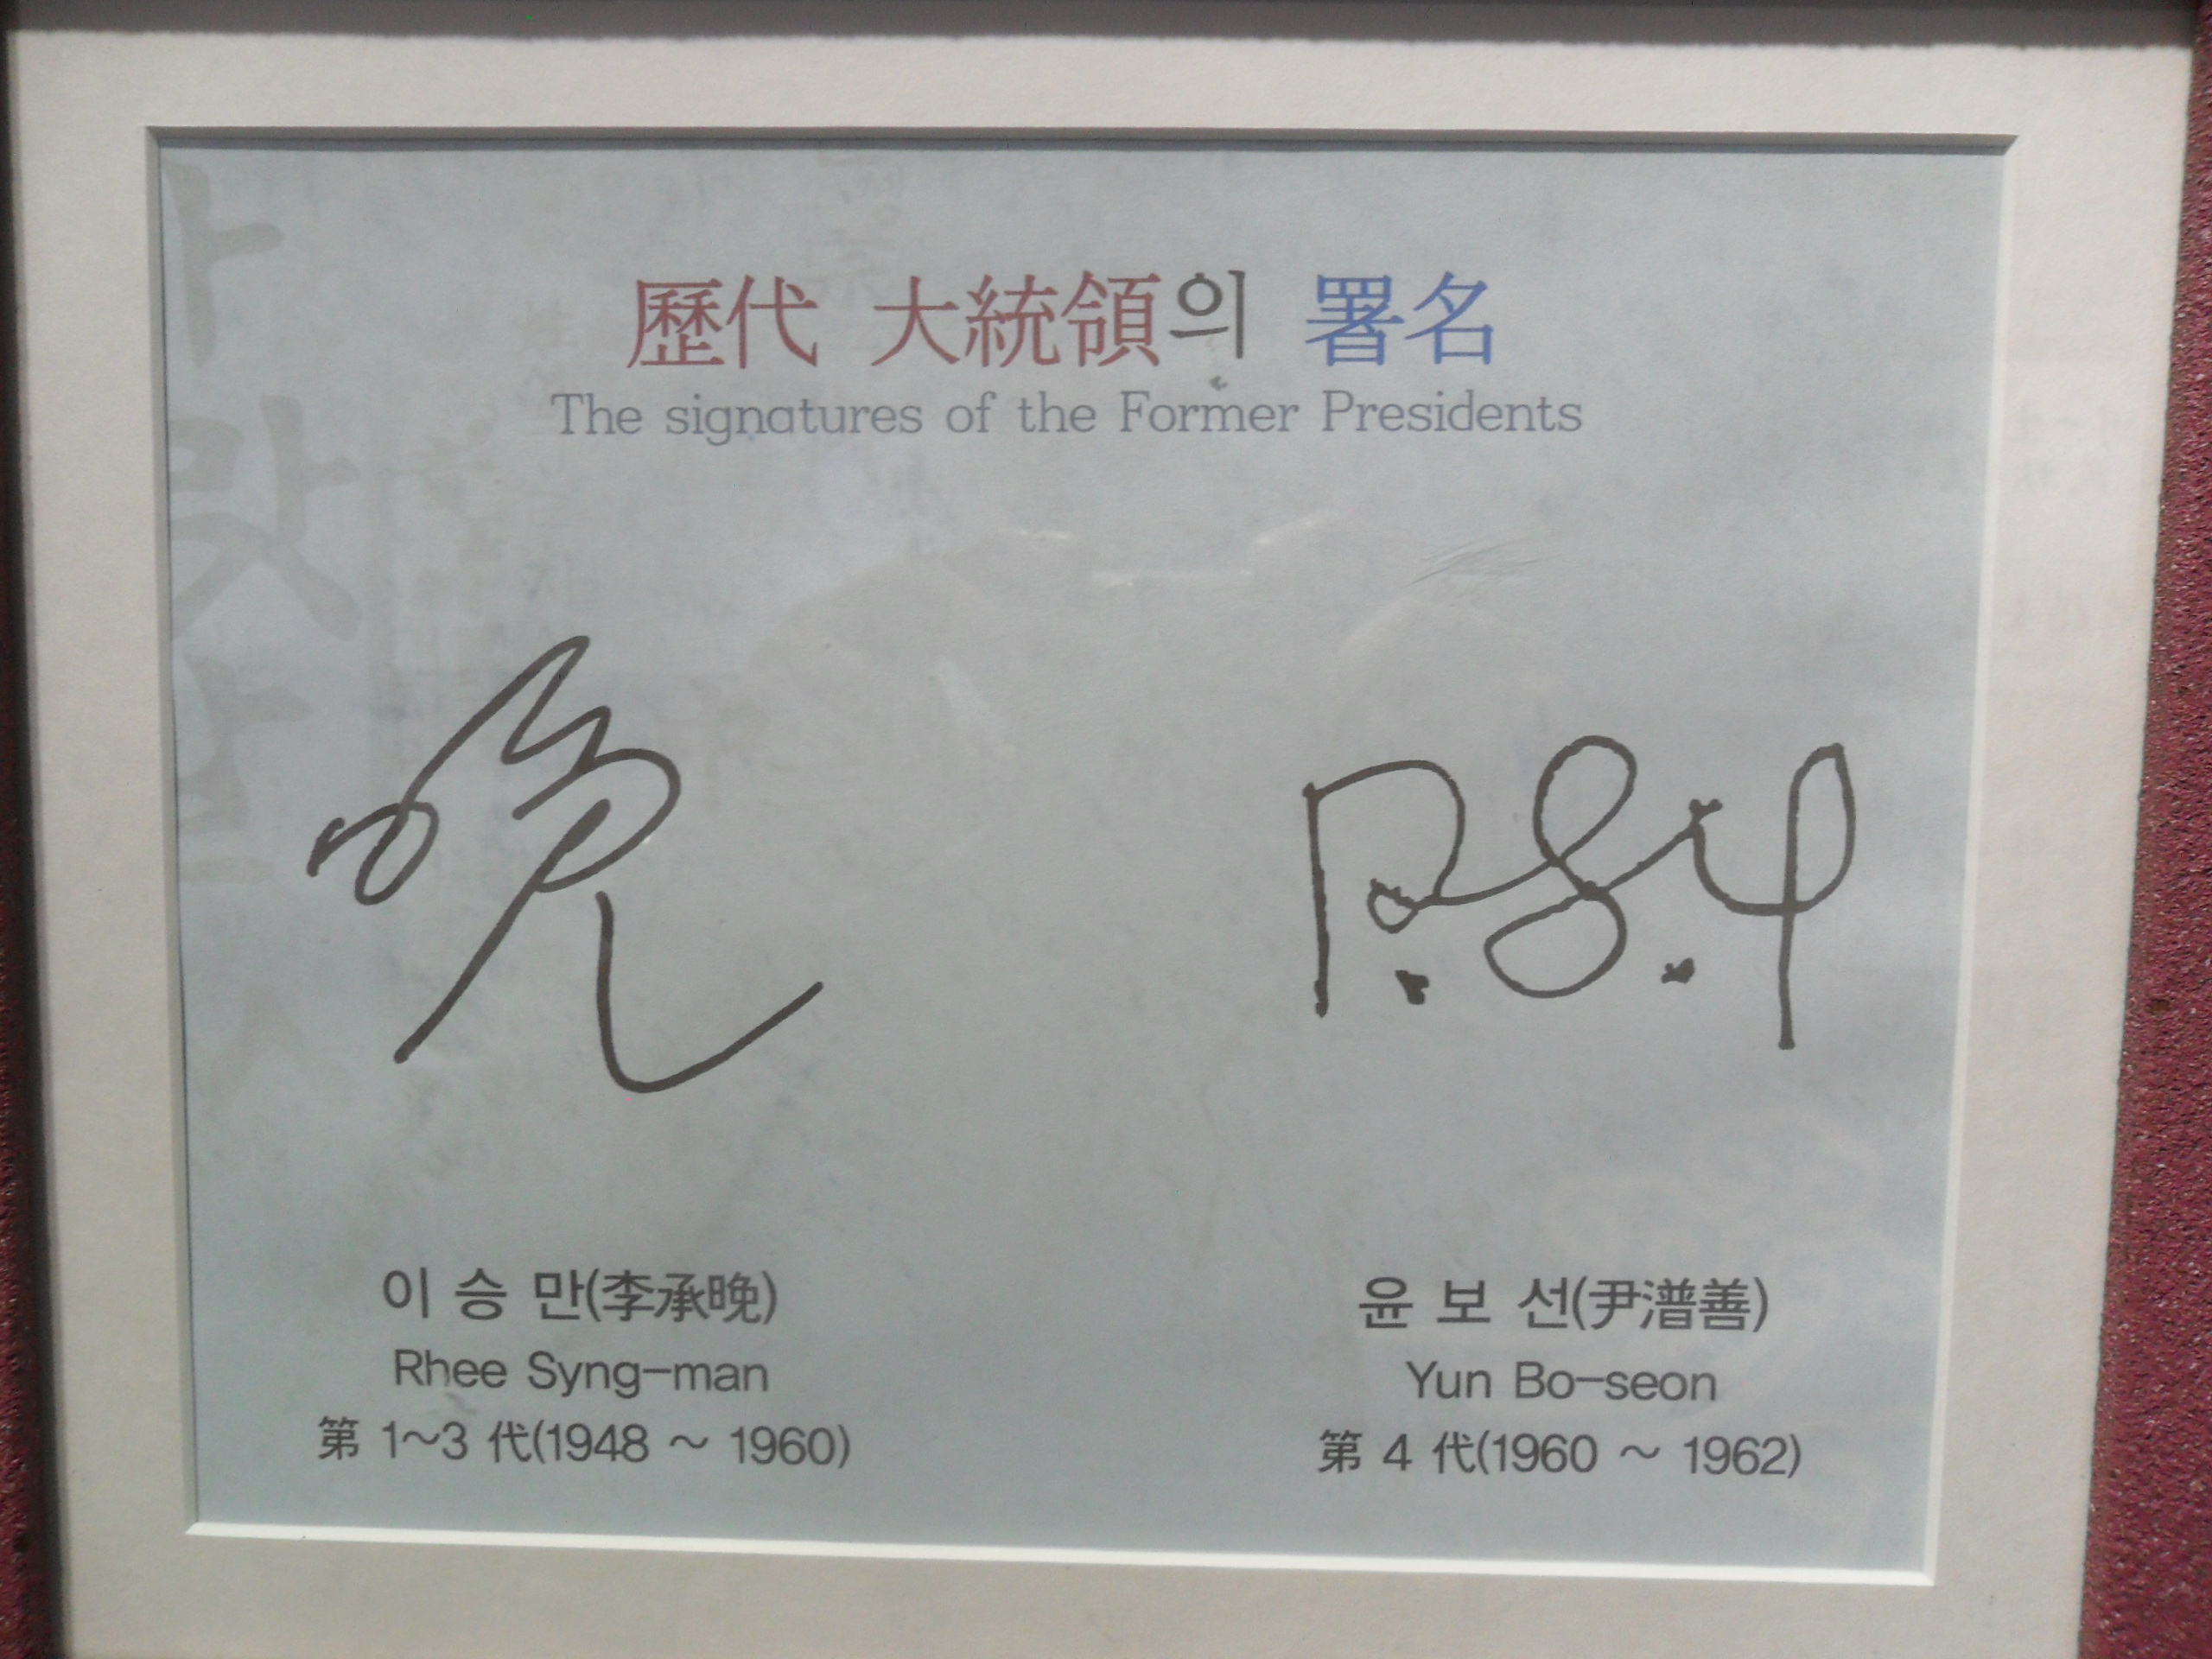 歷代 大統領의 署名
The signatures of the Former Presidents
晚
P.S.Y
이 승 만(李承晩)
Rhee Syng-man
第 1~3 代(1948 ~ 1960)
윤 보 선(尹潽善)
Yun Bo-seon
第 4 代(1960 ~ 1962)